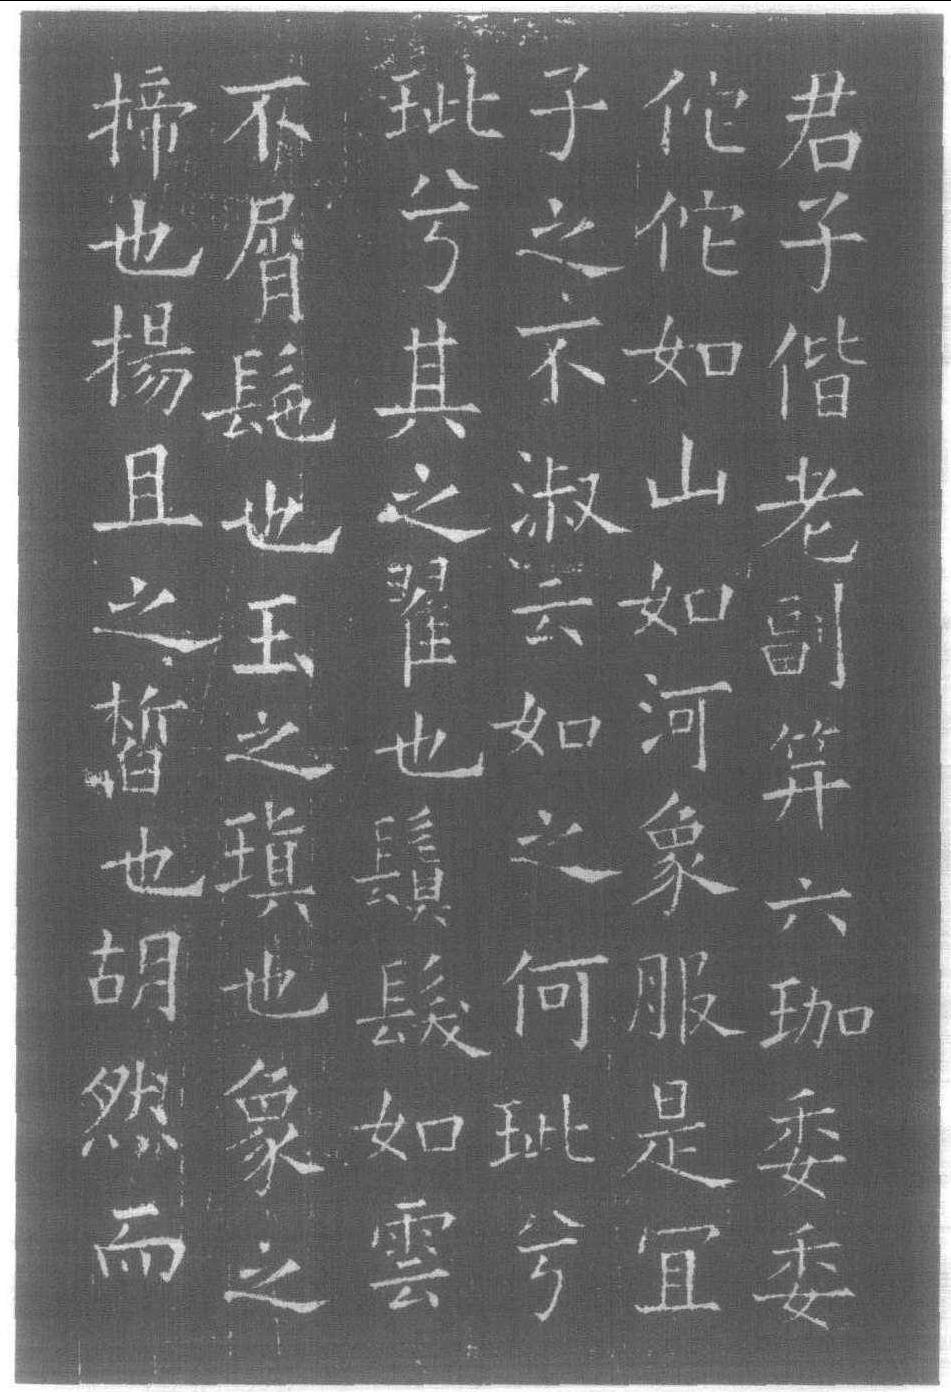 君子偕老副笄六珈委委
佗佗如山如河象服是冝
子之不淑云如之何玼兮
玼兮其之翟也鬒髮如雲
不屑髢也玉之瑱也象之
揥也揚且之晳也胡然而